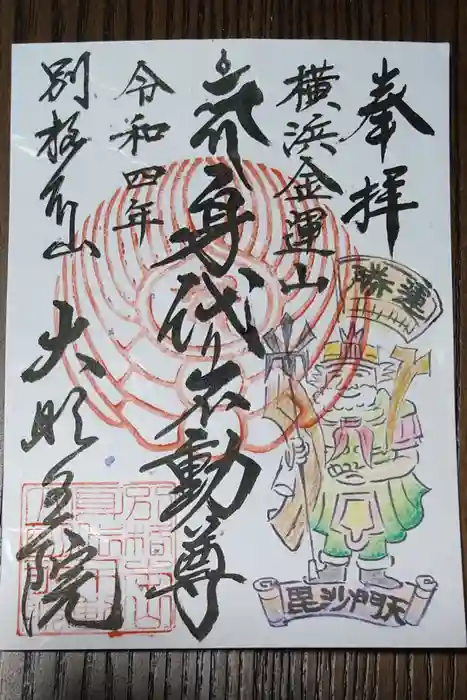 奉拝
横浜金運山
身代り不動尊
令和四年
別格本山
大明王院
運勝
毘沙門天